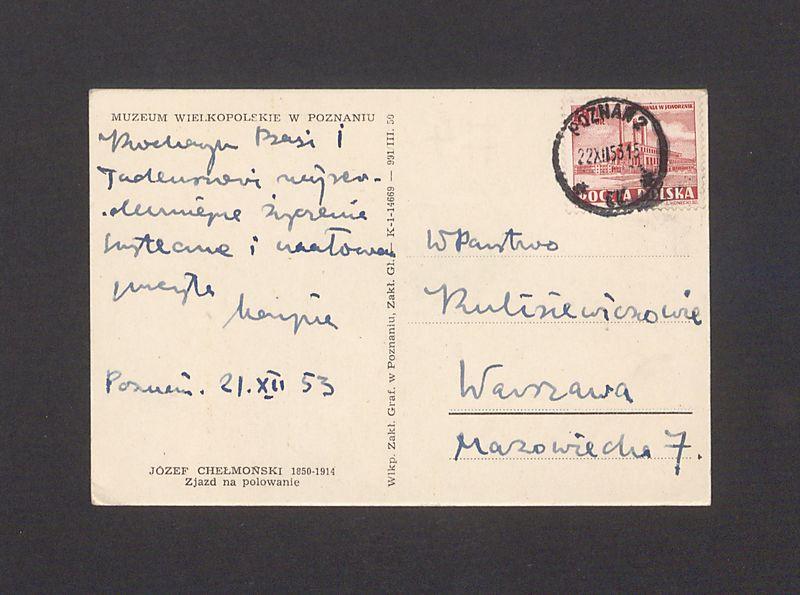 MUZEUM WIELKOPOLSKIE W POZNANIU
Kochanym Basi i
Tadeuszowi najser-
deczniejsze życzenia
świąteczne i
Poznań. 21.XII 53
JÓZEF CHEŁMOŃSKI 1850-1914
Zjazd na polowanie
Wlkp. Zakł. Graf. w Poznaniu, Zakł. Gł. — K-1-14669 — 991/III. 50
POZNAŃ 2
22XII53 15
POCZTA POLSKA
WPaństwo
Kulisiewiczowie
Warszawa
Mazowiecka 7.